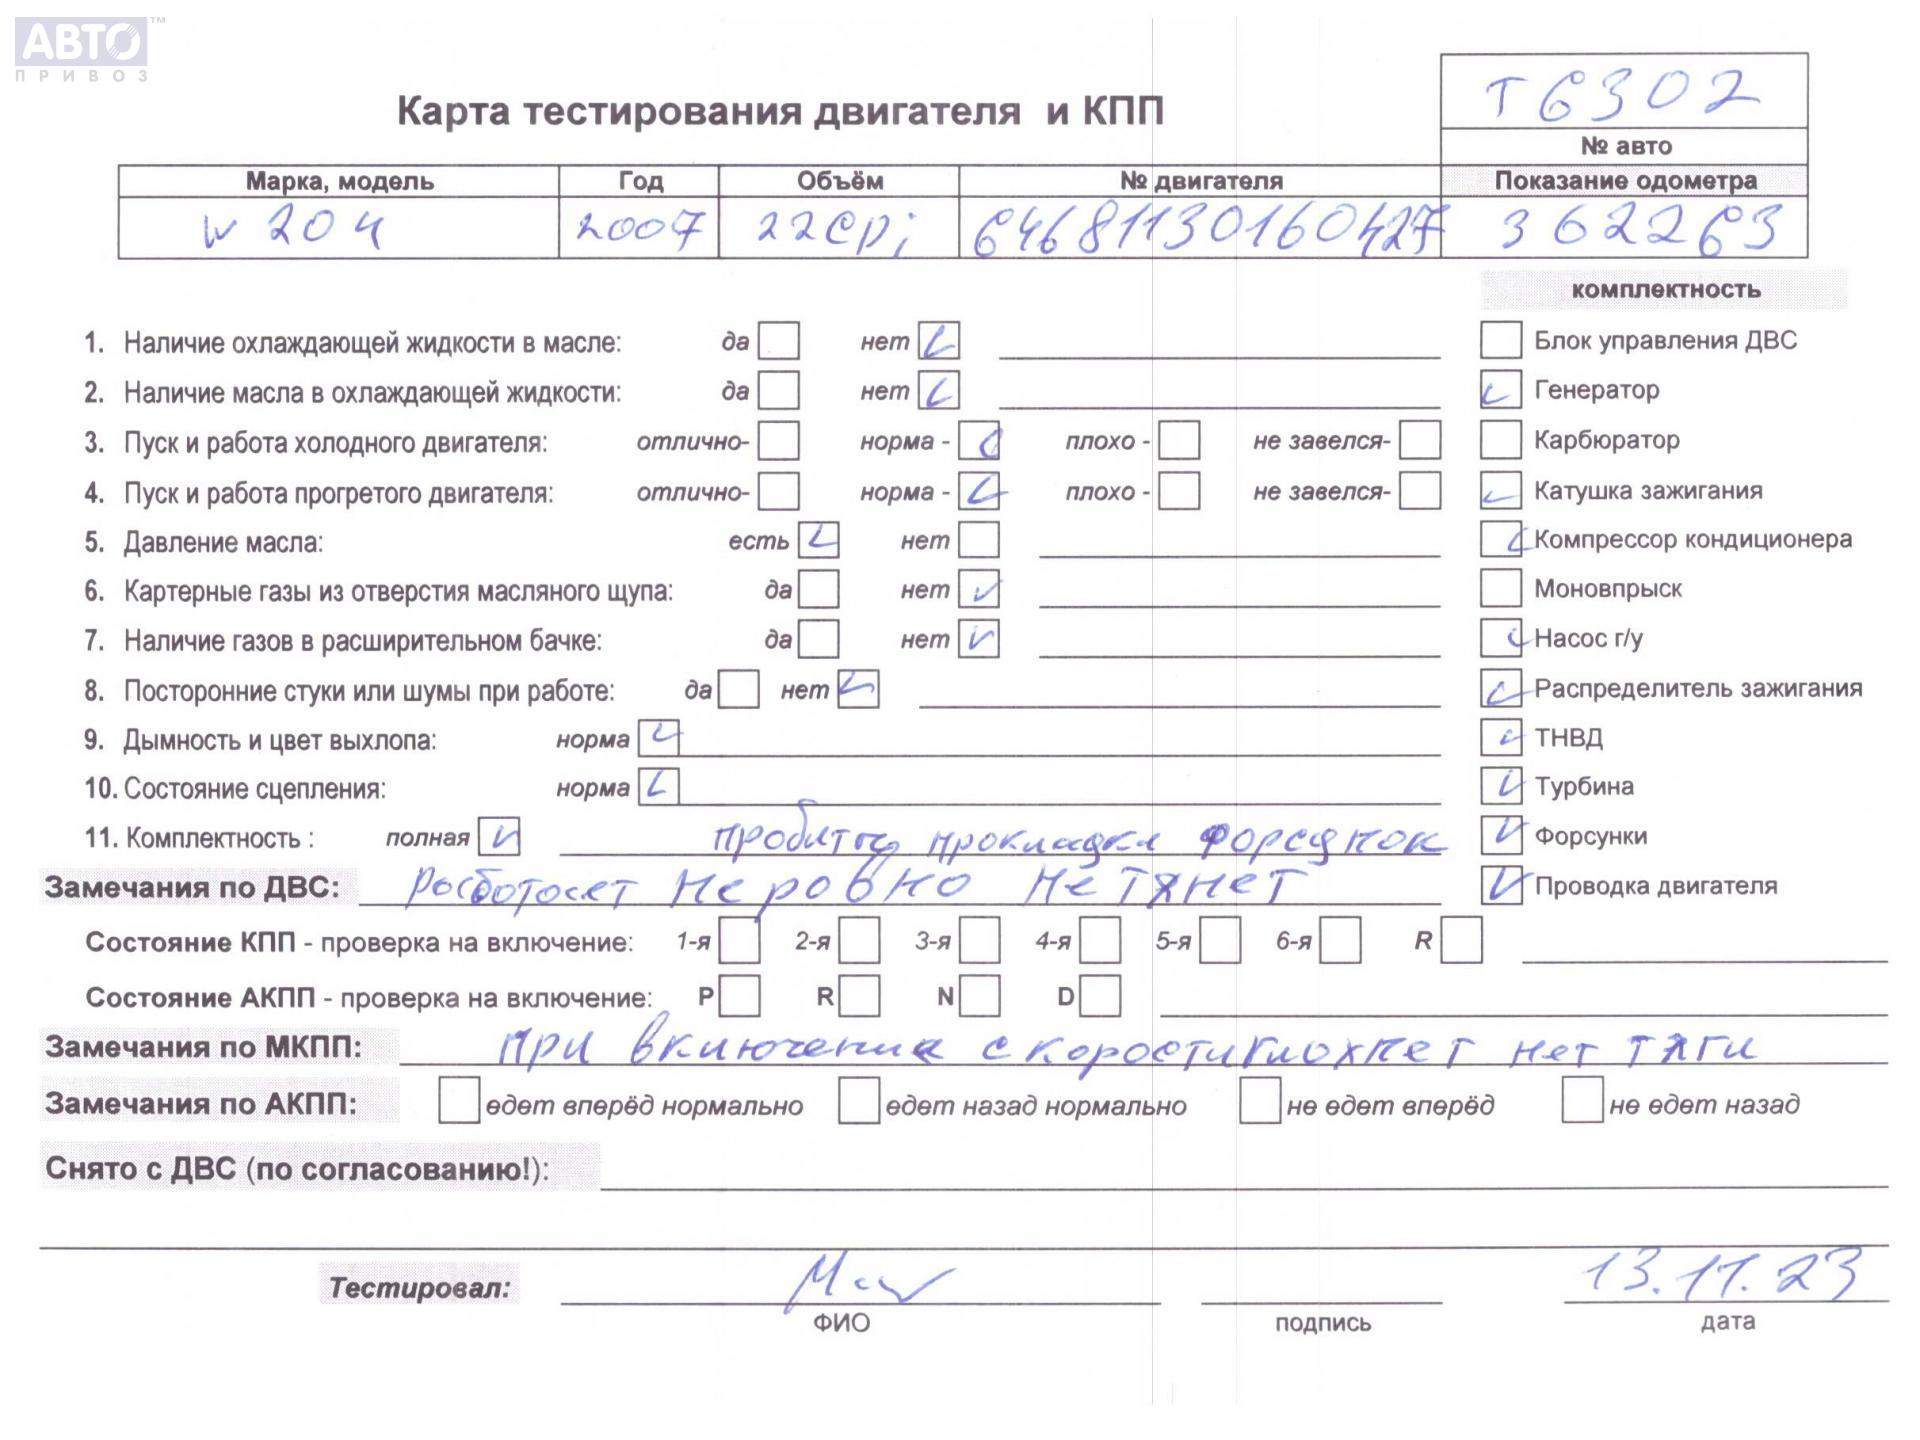 АВТО™
ПРИВОЗ
Т 6302
Карта тестирования двигателя и КПП
№ авто
Марка, модель Год Объём № двигателя Показание одометра
w 204 2007 22cpi 64681130160427 362263
комплектность
1. Наличие охлаждающей жидкости в масле: да нет Блок управления ДВС
2. Наличие масла в охлаждающей жидкости: да нет Генератор
3. Пуск и работа холодного двигателя: отлично- норма - плохо - не завелся- Карбюратор
4. Пуск и работа прогретого двигателя: отлично- норма - плохо - не завелся- Катушка зажигания
5. Давление масла: есть нет Компрессор кондиционера
6. Картерные газы из отверстия масляного щупа: да нет Моновпрыск
7. Наличие газов в расширительном бачке: да нет Насос г/у
8. Посторонние стуки или шумы при работе: да нет Распределитель зажигания
9. Дымность и цвет выхлопа: норма ТНВД
10. Состояние сцепления: норма Турбина
11. Комплектность : полная пробиты прокладки форсунок Форсунки
Замечания по ДВС: работает неровно не тянет Проводка двигателя
Состояние КПП - проверка на включение: 1-я 2-я 3-я 4-я 5-я 6-я R
Состояние АКПП - проверка на включение: P R N D
Замечания по МКПП: при включение скорости глохнет нет тяги
Замечания по АКПП: едет вперёд нормально едет назад нормально не едет вперёд не едет назад
Снято с ДВС (по согласованию!):
Тестировал: 13.11.23
ФИО подпись дата